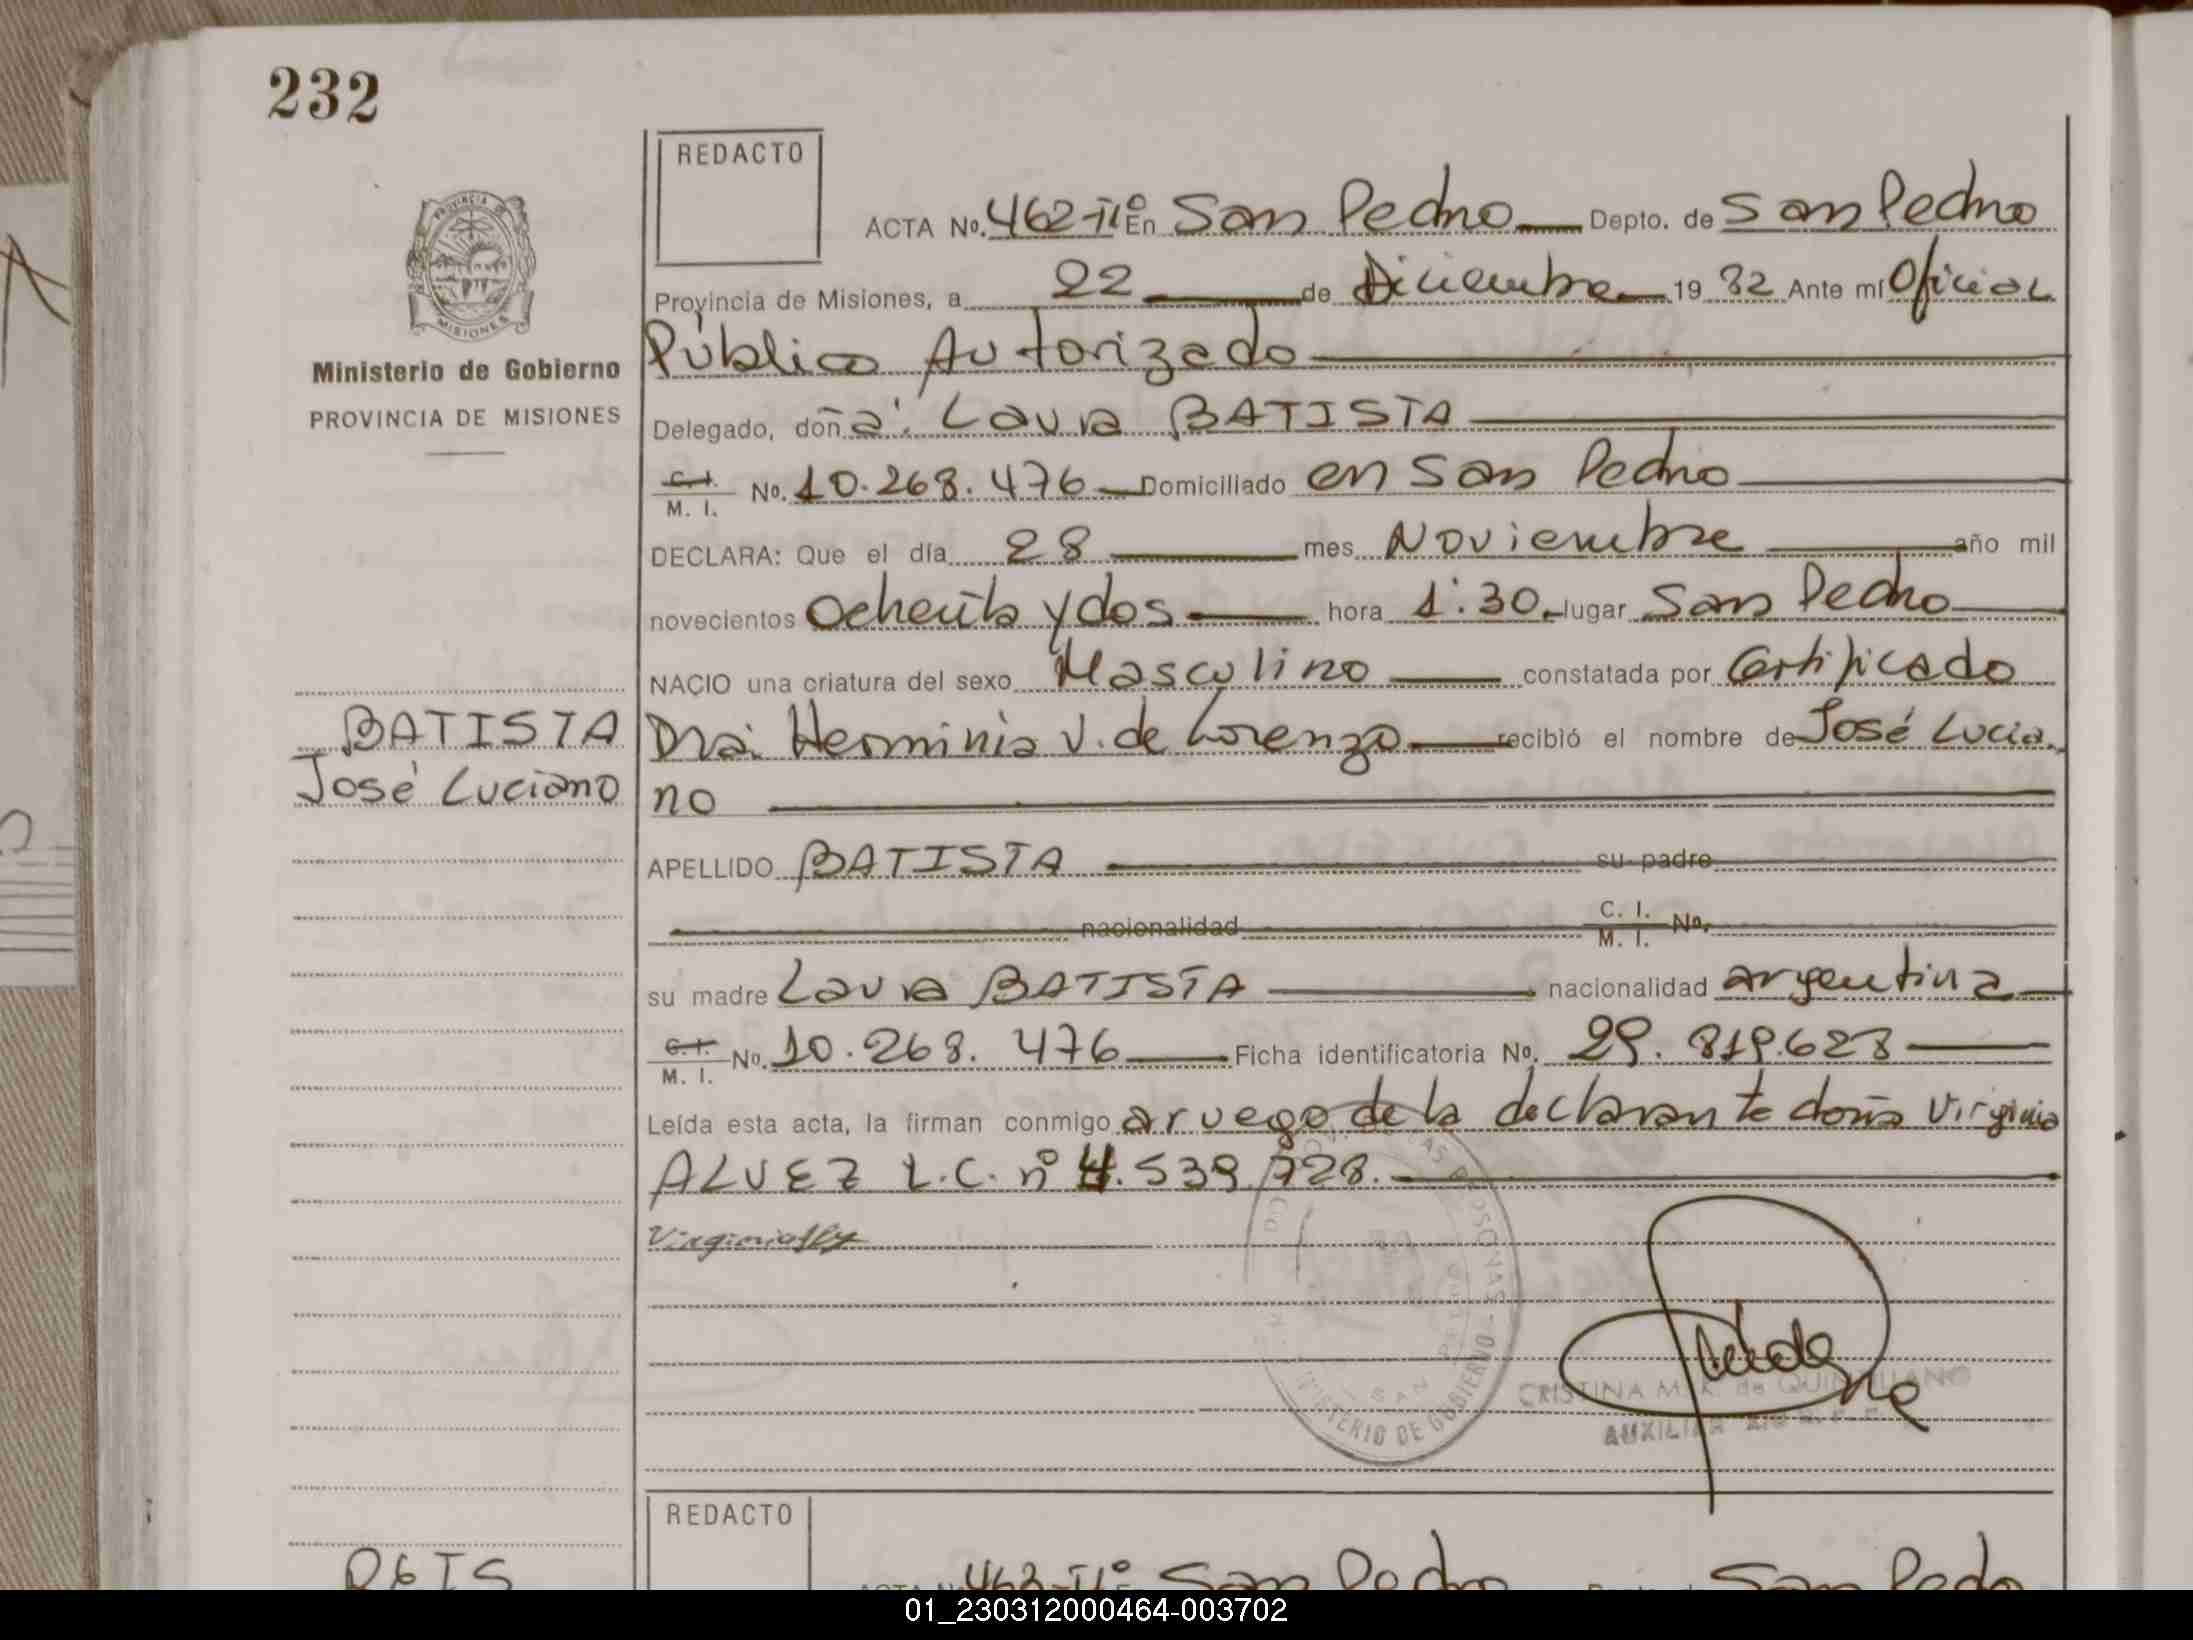 232
REDACTO
ACTA No. 462-IIº En San Pedro Depto. de San Pedro
PROVINCIA DE
MISIONES
Provincia de Misiones, a 22 de Diciembre 19 82 Ante mí Oficial
Público Autorizado
Ministerio de Gobierno
PROVINCIA DE MISIONES
Delegado, doña: Laura BATISTA
C. I. M. I. No. 10.268.476 Domiciliado en San Pedro
DECLARA: Que el día 28 mes Noviembre año mil
novecientos Ochenta y dos hora 1:30 lugar San Pedro
NACIO una criatura del sexo Masculino constatada por Certificado
BATISTA
José Luciano
Dra. Herminia V. de Lorenzo recibió el nombre de José Lucia
no
APELLIDO BATISTA su padre
nacionalidad C. I. M. I. No.
su madre Laura BATISTA nacionalidad argentina
C. I. M. I. No. 10.268.476 Ficha identificatoria No. 29.819.628
Leída esta acta, la firman conmigo a ruego de la declarante doña Virginia
ALVEZ L.C. nº 4.539.728.
MINISTERIO DE GOBIERNO
SAN
CRISTINA M. K. de QUINTILLANO
AUXILIAR
REDACTO
463-IIº San Pedro San Pedro
01_230312000464-003702